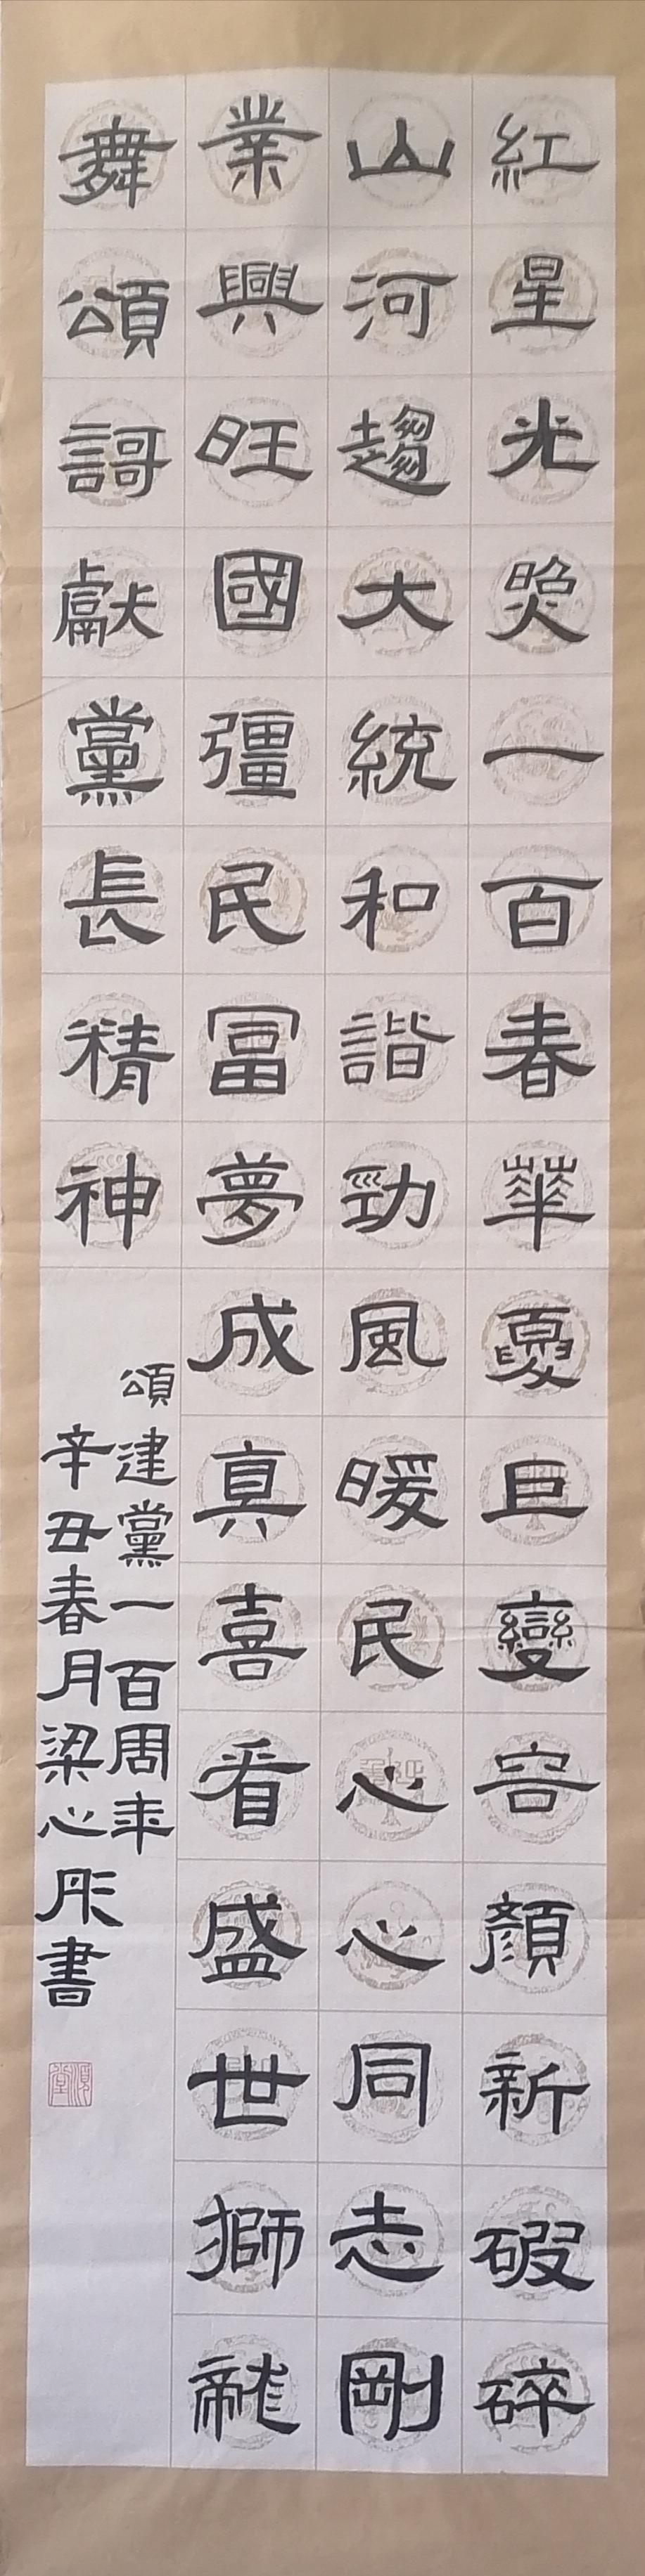 紅星光照一百春華夏巨變容顏新破碎
山河趨大統和諧勁風暖民心心同志剛
業興旺國彊民冨夢成真喜看盛世獅龍
舞頌謌獻黨長精神
頌建黨一百周年
辛丑春月梁心彤書